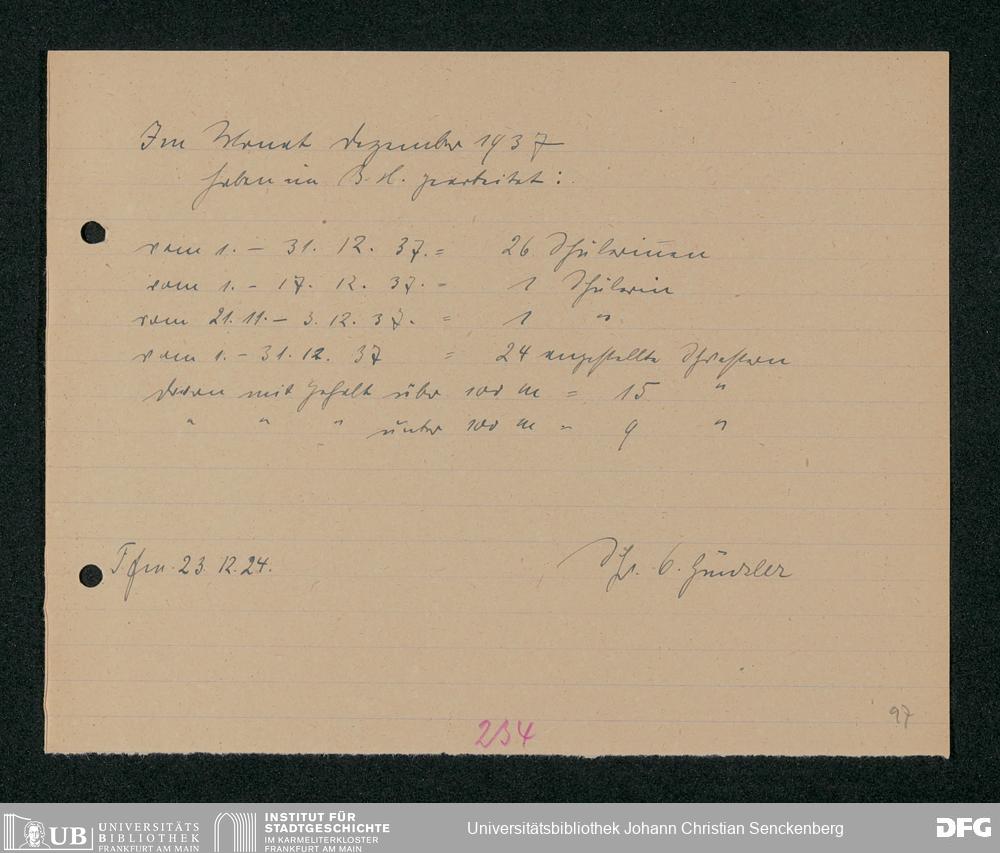 Im Monat Dezember 1937
haben im B. H. gearbeitet:
vom 1. – 31. 12. 37. = 26 Schülerinnen
vom 1. – 17. 12. 37. = 1 Schülerin
vom 21. 11. – 3. 12. 37. = 1 "
vom 1. – 31. 12. 37 = 24 angestellte Schwestern
davon mit Gehalt über 100 M = 15 "
" " " unter 100 M = 9 "
Ffm. 23. 12. 24.
Schw.
234
97
UB UNIVERSITÄTS
BIBLIOTHEK
FRANKFURT AM MAIN
INSTITUT FÜR
STADTGESCHICHTE
IM KARMELITERKLOSTER
FRANKFURT AM MAIN
Universitätsbibliothek Johann Christian Senckenberg
DFG